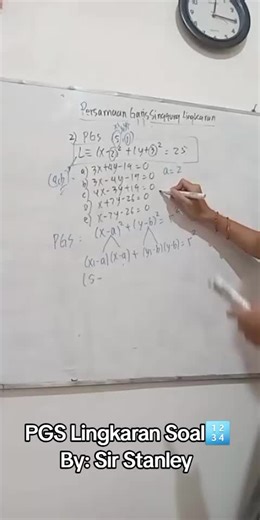 Persamaan Garis Singgung Lingkaran
2) PGS (5, )
L ≡ (x-2)² + (y+3)² = 25
a) 3x+4y-19=0 a=2
b) 3x-4y-19=0
c) 4x-3y+19=0
d) x+7y-26=0
e) x-7y-26=0
PGS: (x-a)² + (y-b)² = r²
(x₁-a)(x-a) + (y₁-b)(y-b) = r²
(5-
PGS Lingkaran Soal🔢
By: Sir Stanley